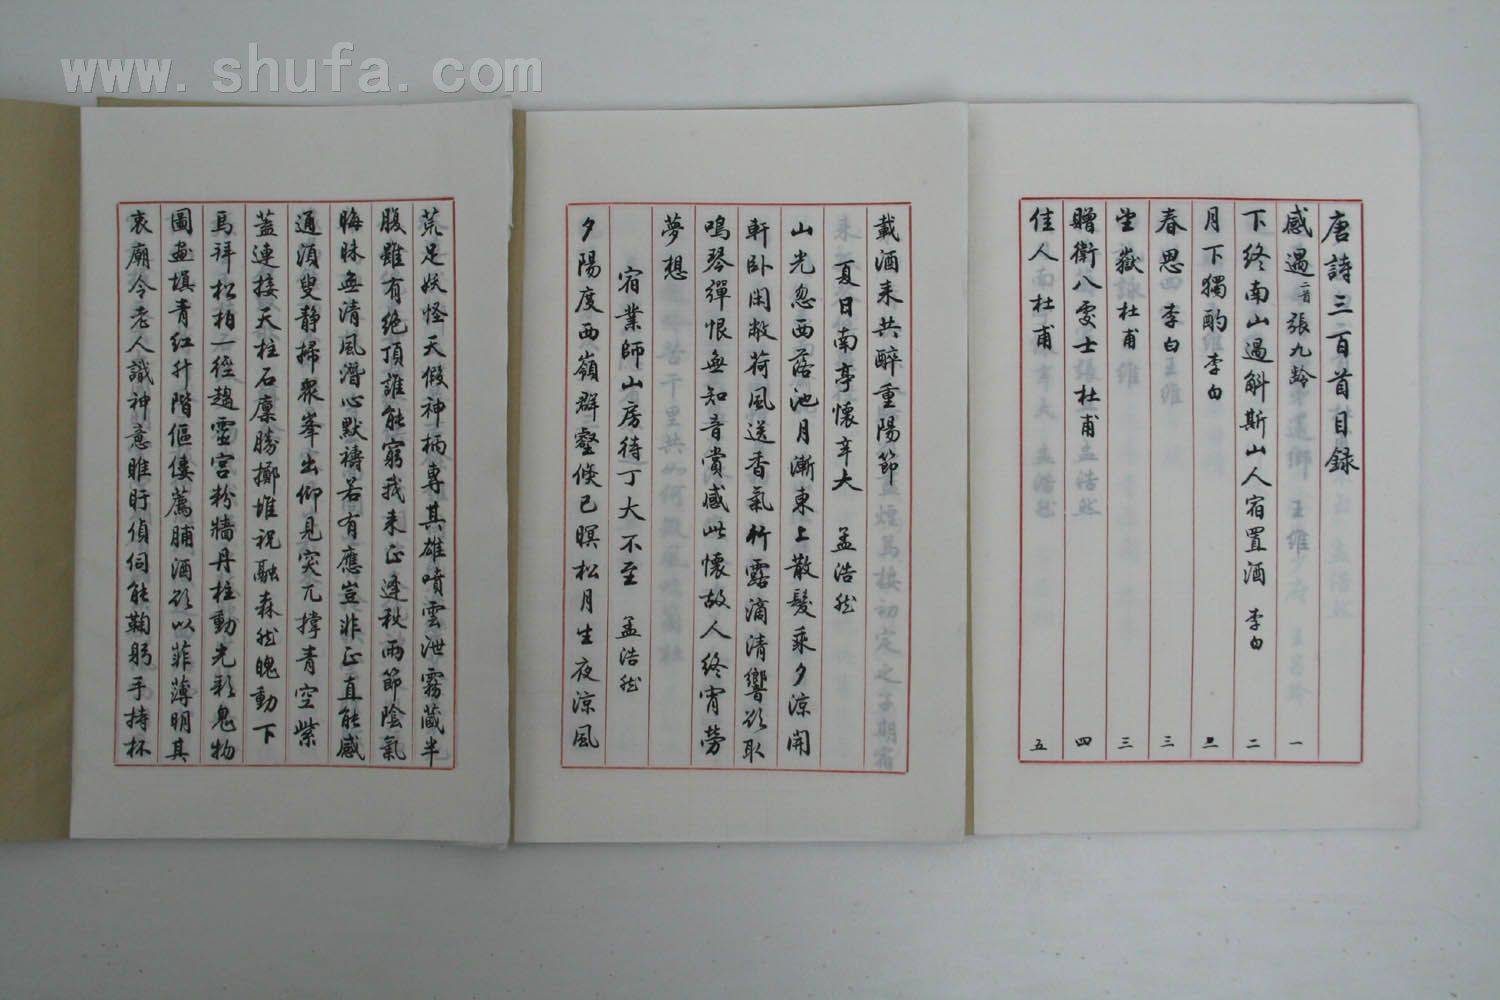 www.shufa.com
唐詩三百首目錄
感遇二首張九齡 一
下終南山過斛斯山人宿置酒 李白 二
月下獨酌李白 二
春思李白 三
望嶽杜甫 三
贈衛八處士杜甫 四
佳人杜甫 五
載酒来共醉重陽節
夏日南亭懷辛大 孟浩然
山光忽西落池月漸東上散髮乘夕涼開
軒卧閑敞荷風送香氣竹露滴清響欲取
鳴琴彈恨無知音賞感此懷故人終宵勞
夢想
宿業師山房待丁大不至 孟浩然
夕陽度西嶺群壑倏已暝松月生夜涼風
荒足妖怪天假神柄專其雄噴雲泄霧藏半
腹雖有绝頂誰能窮我来正逢秋雨節陰氣
晦昧無清風潛心默禱若有應豈非正直能感
通須臾静掃眾峯出仰見突兀撑青空紫
蓋連接天柱石廩騰擲堆祝融森然魄動下
馬拜松柏一徑趨靈宫粉牆丹柱動光彩鬼物
圖畫填青紅升階傴僂薦脯酒欲以菲薄明其
衷廟令老人識神意睢盱偵伺能鞠躬手持杯